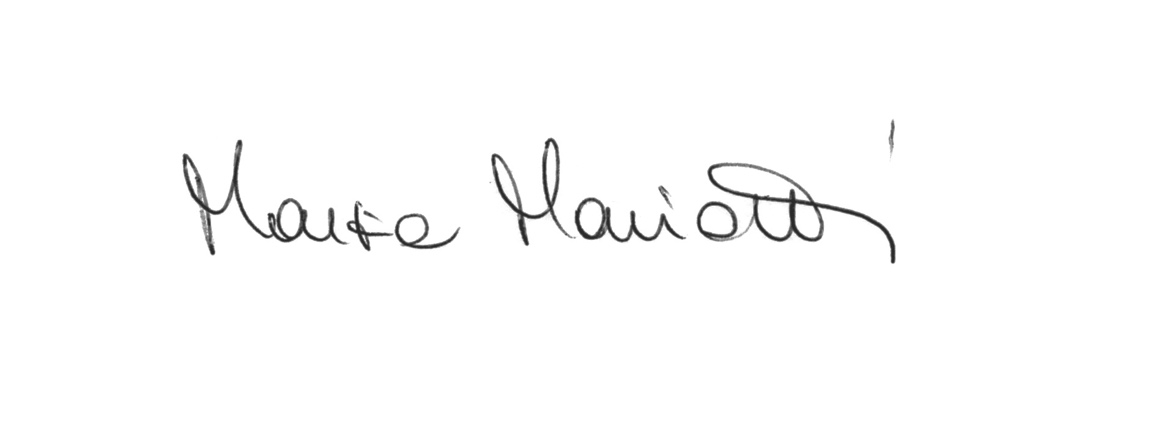 Marko Mariotti